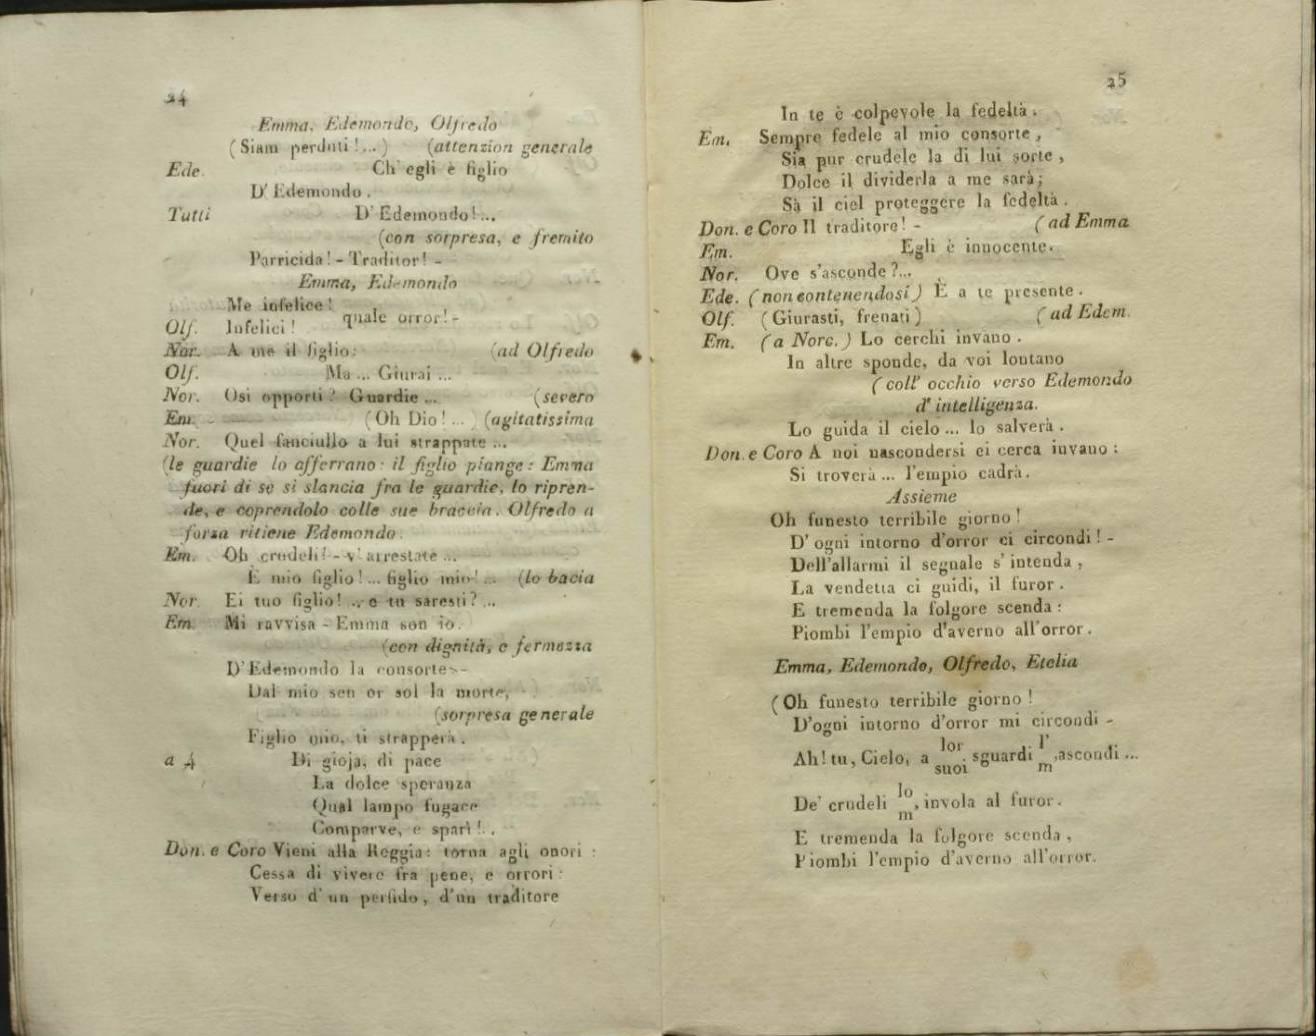 24
Emma, Edemondo, Olfredo
(Siam perduti!...) (attenzion generale
Ede. Ch' egli è figlio
D' Edemondo.
Tutti D' Edemondo!...
(con sorpresa, e fremito
Parricida! - Traditor! -
Emma, Edemondo
Me infelice!
quale orror!-
Olf. Infelici!
Nor. A me il figlio: (ad Olfredo
Olf. Ma... Giurai ...
Nor. Osi opporti? Guardie ... (severo
Em. (Oh Dio! ... ) (agitatissima
Nor. Quel fanciullo a lui strappate ...
(le guardie lo afferrano: il figlio piange: Emma
fuori di se si slancia fra le guardie, lo ripren-
de, e coprendolo colle sue braccia. Olfredo a
forza ritiene Edemondo.
Em. Oh crudeli! - v' arrestate ...
È mio figlio!... figlio mio!... (lo bacia
Nor. Ei tuo figlio! ... e tu saresti? ...
Em. Mi ravvisa - Emma son io.
(con dignità, e fermezza
D' Edemondo la consorte -
Dal mio sen or sol la morte,
(sorpresa generale
Figlio mio, ti strapperà.
a 4 Di gioja, di pace
La dolce speranza
Qual lampo fugace
Comparve, e sparì!..
Don. e Coro Vieni alla Reggia: torna agli onori:
Cessa di vivere fra pene, e orrori:
Verso d' un perfido, d'un traditore
25
In te è colpevole la fedeltà.
Em. Sempre fedele al mio consorte,
Sia pur crudele la di lui sorte,
Dolce il dividerla a me sarà;
Sà il ciel proteggere la fedeltà.
Don. e Coro Il traditore! - (ad Emma
Em. Egli è innocente.
Nor. Ove s'asconde?...
Ede. (non contenendosi) È a te presente.
Olf. (Giurasti, frenati) (ad Edem.
Em. (a Norc.) Lo cerchi invano.
In altre sponde, da voi lontano
(coll' occhio verso Edemondo
d' intelligenza.
Lo guida il cielo... lo salverà.
Don. e Coro A noi nascondersi ei cerca invano:
Si troverà... l'empio cadrà.
Assieme
Oh funesto terribile giorno!
D' ogni intorno d'orror ci circondi! -
Dell'allarmi il segnale s' intenda,
La vendetta ci guidi, il furor.
E tremenda la folgore scenda:
Piombi l'empio d'averno all'orror.
Emma, Edemondo, Olfredo, Etelia
(Oh funesto terribile giorno!
D'ogni intorno d'orror mi circondi -
lor l'
Ah! tu, Cielo, a sguardi ,ascondi ...
suoi m
lo
De' crudeli ,invola al furor.
m
E tremenda la folgore scenda,
Piombi l'empio d'averno all'orror.